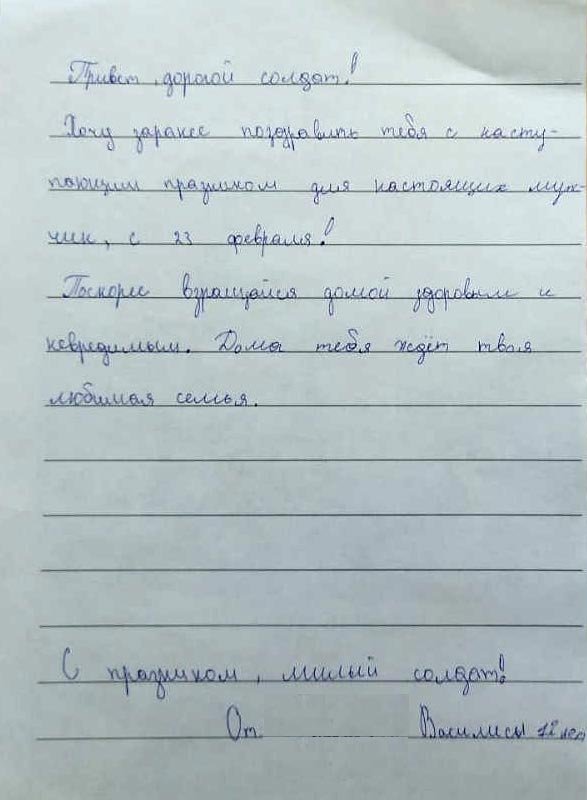 Привет, дорогой солдат!
Хочу заранее поздравить тебя с насту-
пающим празником для настоящих муж-
чин, с 23 февраля!
Поскорее взращайся домой здоровым и
невредимым. Дома тебя ждёт твоя
любимая семья.
С празником, милый солдат!
От Василисы 12 лет